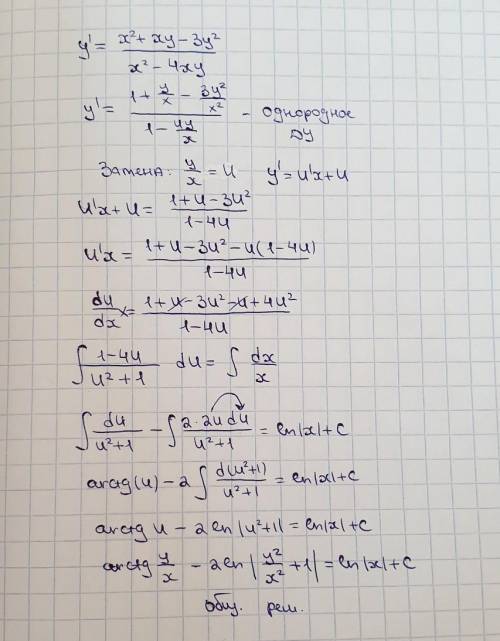 y' = (x² + xy - 3y²) / (x² - 4xy)
y' = (1 + y/x - 3y²/x²) / (1 - 4y/x) - однородное ДУ
Замена: y/x = u   y' = u'x + u
u'x + u = (1 + u - 3u²) / (1 - 4u)
u'x = (1 + u - 3u² - u(1 - 4u)) / (1 - 4u)
du/dx x = (1 + u - 3u² - u + 4u²) / (1 - 4u)
∫ (1 - 4u)/(u² + 1) du = ∫ dx/x
∫ du/(u² + 1) - ∫ (2·2u du)/(u² + 1) = ln|x| + c
arctg(u) - 2 ∫ d(u² + 1)/(u² + 1) = ln|x| + c
arctg u - 2 ln|u² + 1| = ln|x| + c
arctg y/x - 2 ln|y²/x² + 1| = ln|x| + c
общ. реш.